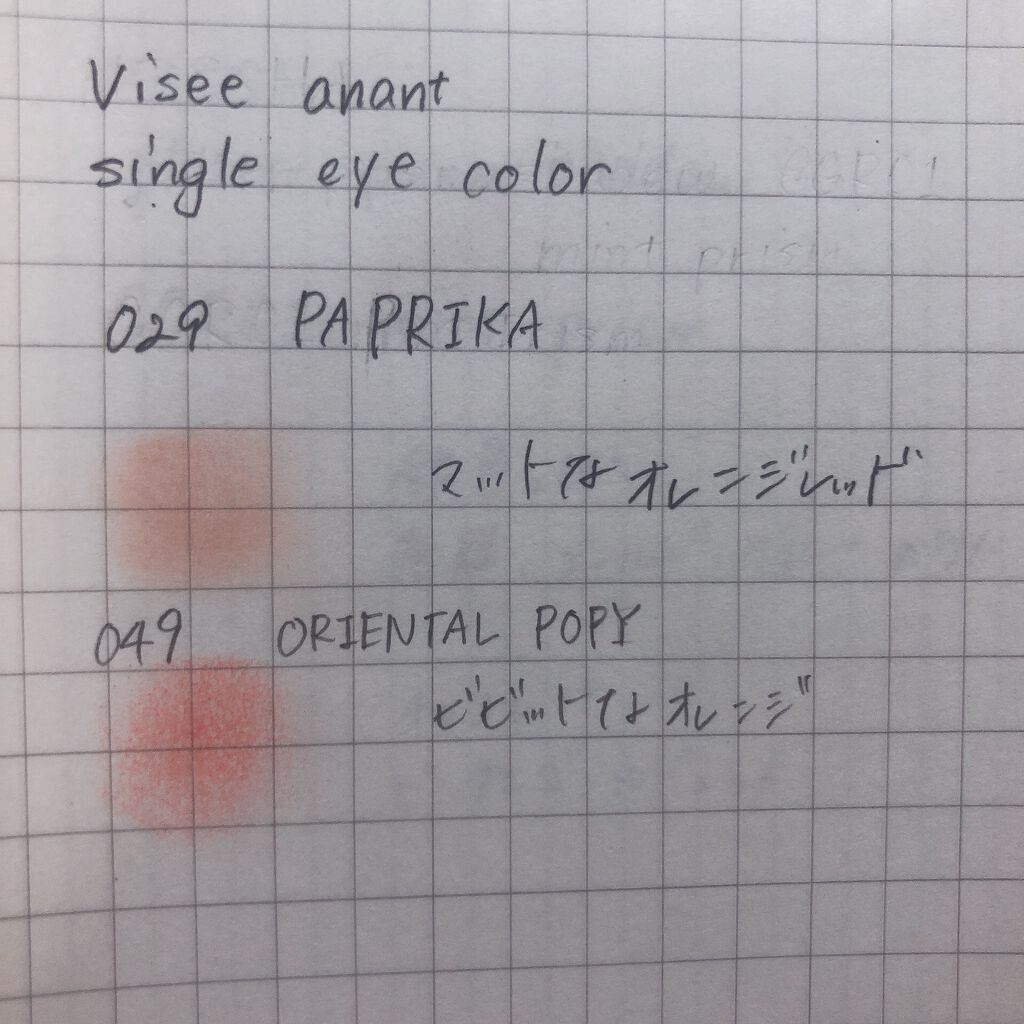 Visee anant
single eye color
029 PAPRIKA
マットなオレンジレッド
049 ORIENTAL POPY
ビビットなオレンジ